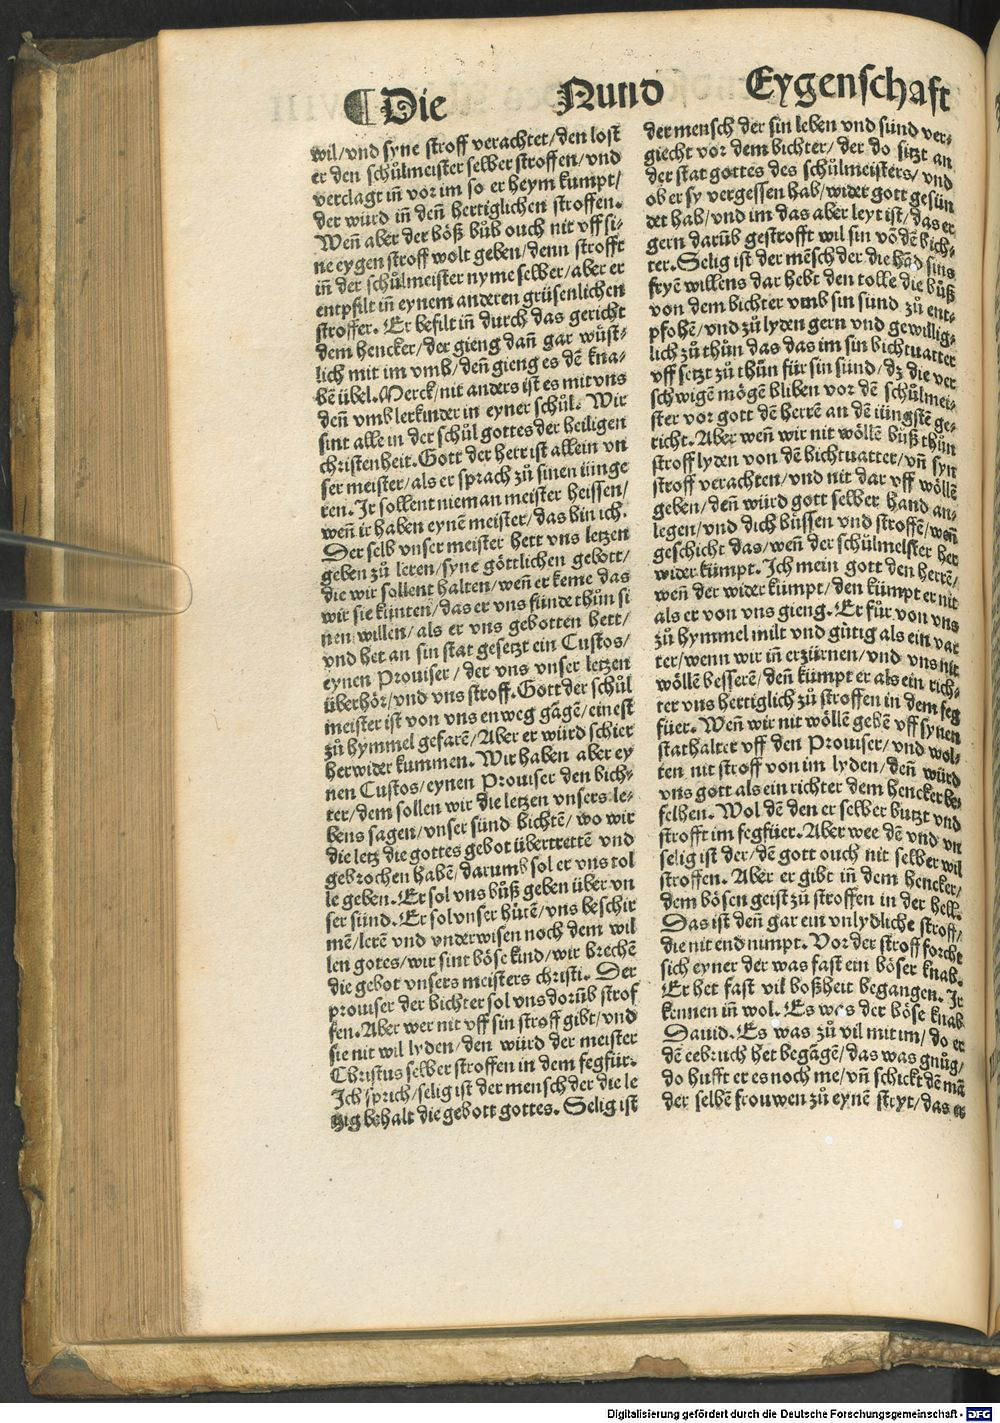 ¶Die Nund Eygenschaft
wil/vnd syne stroff verachtet/den lost
er den schůlmeister selber stroffen/vnd
verclagt in̄ vor im so er heym kumpt/
der würd in̄ den̄ hertiglichen stroffen.
Wen̄ aber der böß bůb ouch nit vff si-
ne eygen stroff wolt geben/denn strofft
in̄ der schůlmeister nyme selber/aber er
entpfilt in̄ eynem anderen grüsenlichen
stroffer. Er befilt in̄ durch das gericht
dem hencker/der gieng dan̄ gar wüst-
lich mit im vmb/den̄ gieng es dē kna-
bē übel. Merck/nit anders ist es mit vns
den̄ vmb lerkinder in eyner schůl. Wir
sint alle in der schůl gottes der heiligen
christenheit. Gott der herr ist allein vn
ser meister/als er sprach zů sinen iünge
ren. Ir sollent nieman meister heissen/
wen̄ ir haben eynē meister/das bin ich.
Der selb vnser meister hett vns letzen
geben zů leren/syne göttlichen gebott/
die wir sollent halten/wen̄ er keme das
wir sie künten/das er vns funde thůn si
nen willen/als er vns gebotten hett/
vnd het an sin stat gesetzt ein Custos/
eynen Prouiser/der vns vnser letzen
überhör/vnd vns stroff. Gott der schůl
meister ist von vns enweg gāgē/ein est
zů hymmel gefarē/Aber er würd schier
herwider kummen. Wir haben aber ey
nen Custos/eynen Prouiser den bich-
ter/dem sollen wir die letzen vnsers le-
bens sagen/vnser sünd bichtē/wo wir
die letz die gottes gebot übertrettē vnd
gebrochen habē/darumb sol er vns tol
le geben. Er sol vns bůß geben über vn
ser sünd. Er sol vnser hütē/vns beschir
mē/lerē vnd vnderwisen noch dem wil
len gotes/wir sint böse kind/wir brechē
die gebot vnsers meisters christi. Der
prouiser der bichter sol vns dorūb strof
fen. Aber wer nit vff sin stroff gibt/vnd
sie nit wil lyden/den würd der meister
Christus selber stroffen in dem fegfür.
Ich sprich/selig ist der mensch der die le
tzig behalt die gebott gottes. Selig ist
der mensch der sin leben vnd sünd ver-
giecht vor dem bichter/der do sitzt an
der stat gottes des schůlmeisters/vnd
ob er sy vergessen hab/wider gott gesün
det hab/vnd im das aber leyt ist/das er
gern darūb gestrofft wil sin vō dē bich-
ter. Selig ist der mēsch der die hād sins
fryē willens dar hebt den tolle die bůß
von dem bichter vmb sin sünd zů ent-
pfohē/vnd zů lyden gern vnd gewillig-
lich zů thůn das das im sin bichtuatter
vff setzt zů thůn für sin sünd/dz die ver
schwigē mögē bliben vor dē schůlmei-
ster vor gott dē herrē an dē iüngstē ge-
richt. Aber wen̄ wir nit wöllē bůß thůn
stroff lyden von dē bichtuatter/vn̄ syn
stroff verachten/vnd nit dar vff wöllē
geben/den̄ würd gott selber hand an-
legen/vnd dich büssen vnd stroffē/wen̄
geschicht das/wen̄ der schůlmeister her
wider kümpt. Ich mein gott den herrē/
wen̄ der wider kümpt/den kümpt er nit
als er von vns gieng. Er für von vns
zů hymmel milt vnd gütig als ein vat
ter/wenn wir in̄ erzürnen/vnd vns nit
wöllē besserē/den̄ kümpt er als ein rich-
ter vns hertiglich zů stroffen in dem feg
füer. Wen̄ wir nit wöllē gebē vff synen
stathalter vff den Prouiser/vnd wol-
ten nit stroff von im lyden/den̄ würd
vns gott als ein richter dem hencker be-
felhen. Wol dē den er selber butzt vnd
strofft im fegfüer. Aber wee dē vnd vn
selig ist der/dē gott ouch nit selber wil
stroffen. Aber er gibt in̄ dem hencker/
dem bösen geist zů stroffen in der hell.
Das ist den̄ gar ein vnlydliche stroff/
die nit end nimpt. Vor der stroff forcht
sich eyner der was fast ein böser knab.
Er het fast vil boßheit begangen. Ir
kennen in̄ wol. Es was der böse knab
Dauid. Es was zů vil mit im/do er
dē eebruch het begāgē/das was gnůg/
do hufft er es noch me/vn̄ schickt dē mā
der selbē frouwen zů eynē stryt/das er
Digitalisierung gefördert durch die Deutsche Forschungsgemeinschaft - DFG